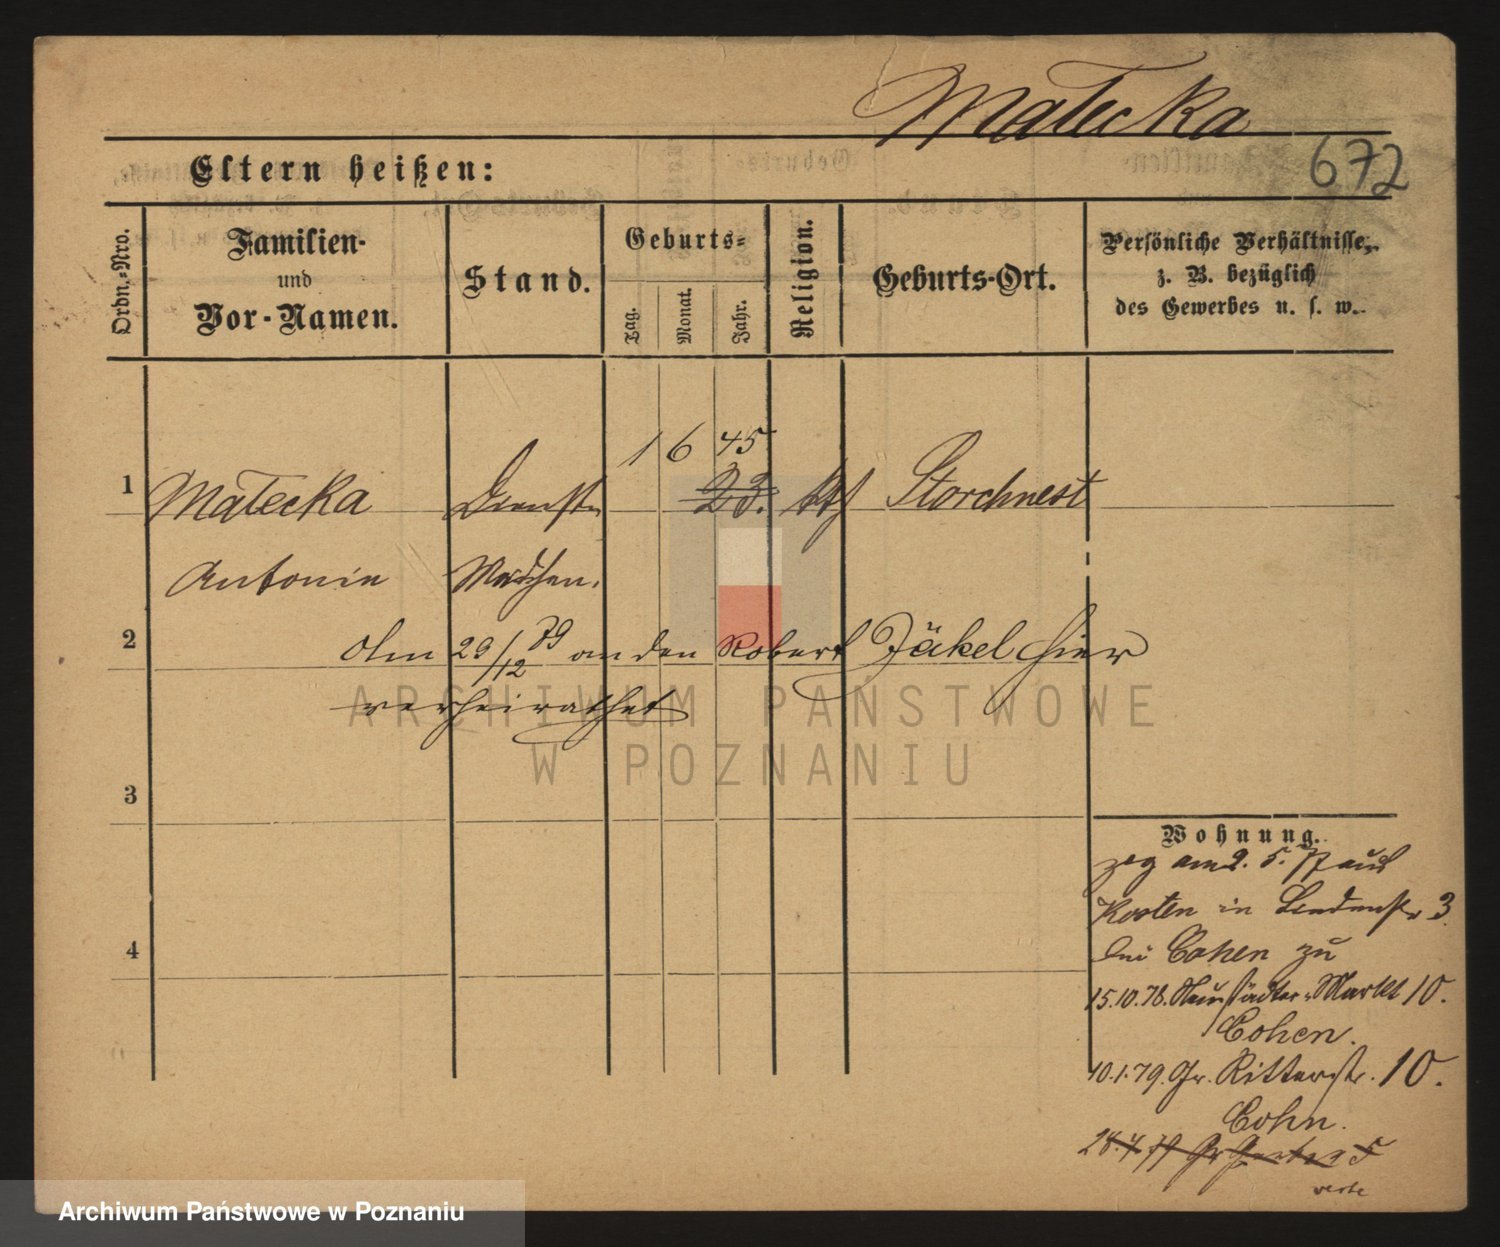 Matecka
672
Eltern heißen:
Ordn.-Nro.
Familien-
und
Vor-Namen.
Stand.
Geburts-
Tag.
Monat.
Jahr.
Religion.
Geburts-Ort.
Persönliche Verhältnisse,
z. B. bezüglich
des Gewerbes u. s. w.
1 6 45
1 Matecka Dienst- 23. kth Storchnest
Antonie Mädchen.
2 Am 29/12 79 an den Robert Jäkel hier
verheirathet
3
4
Wohnung.
zog am 2. 5. 77 aus
Kosten in Lindenstr 3
bei Cohen zu
15.10.78. Neustädter-Markt 10.
Cohen.
10.1.79. Gr. Ritterstr. 10.
Cohn.
28.4.79 Gr 5
ARCHIWUM PAŃSTWOWE
W POZNANIU
Archiwum Państwowe w Poznaniu